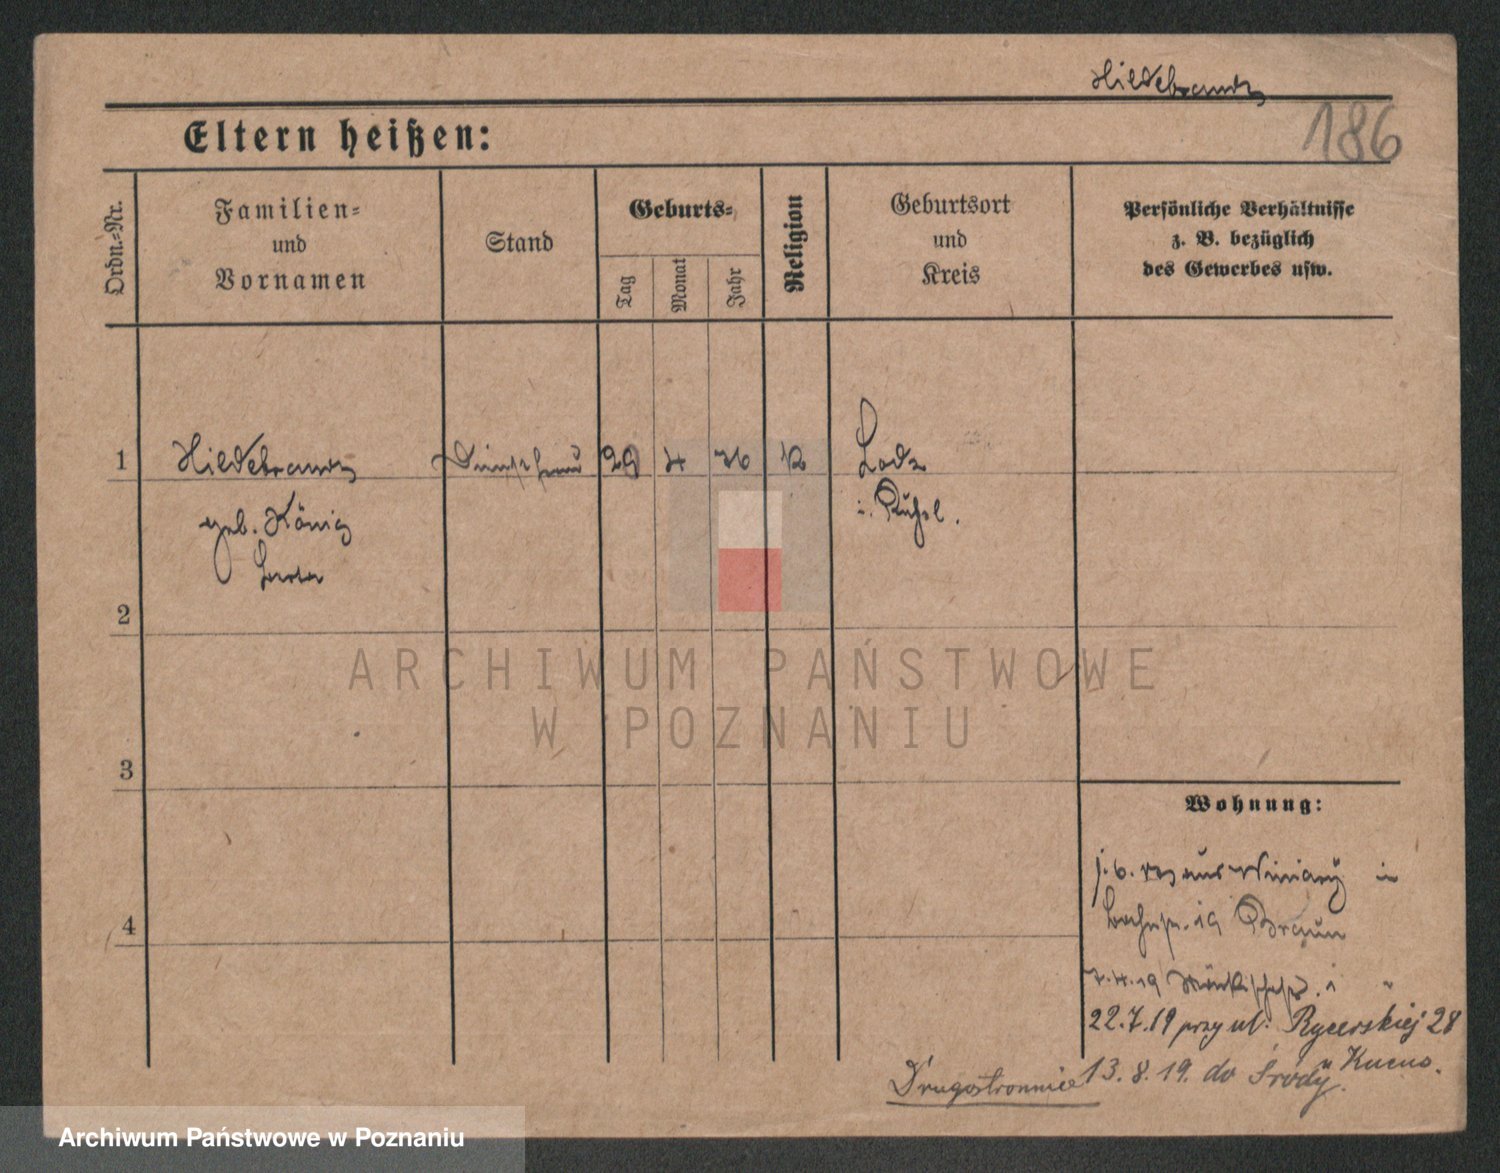 Hildebrandt
186
Eltern heißen:
Ordn.-Nr.
Familien-
und
Vornamen
Stand
Geburts-
Tag
Monat
Jahr
Religion
Geburtsort
und
Kreis
Persönliche Verhältnisse
z. B. bezüglich
des Gewerbes usw.
1
Hildebrandt
29
4
76
Lodz
geb. König
i. Rußl.
2
ARCHIWUM PAŃSTWOWE
W POZNANIU
3
Wohnung:
aus Winiary in
19 Braun
4
7.4.19
22.7.19 przy ul. Rycerskiej 28
Drugostronnie 13.8.19. do Środy
Archiwum Państwowe w Poznaniu